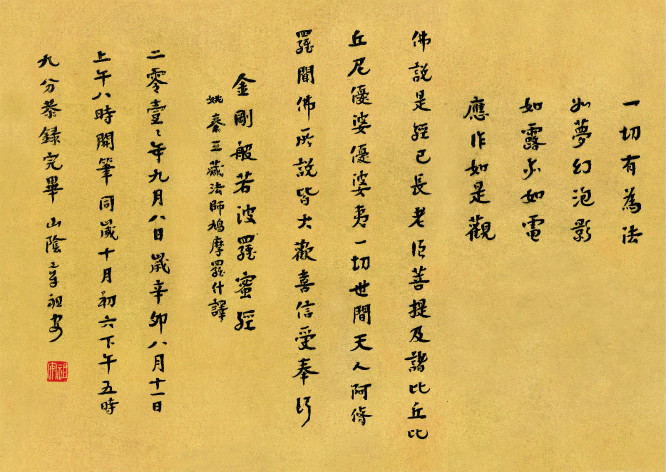 一切有為法
如夢幻泡影
如露亦如電
應作如是觀
佛說是經已長老須菩提及諸比丘比
丘尼優婆優婆夷一切世間天人阿脩
羅聞佛所說皆大歡喜信受奉行
金剛般若波羅蜜經
姚秦三藏法師鳩摩羅什譯
二零壹〻年九月八日歲辛卯八月十一日
上午八時開筆同歲十月初六下午五時
九分恭錄完畢山陰章祖安